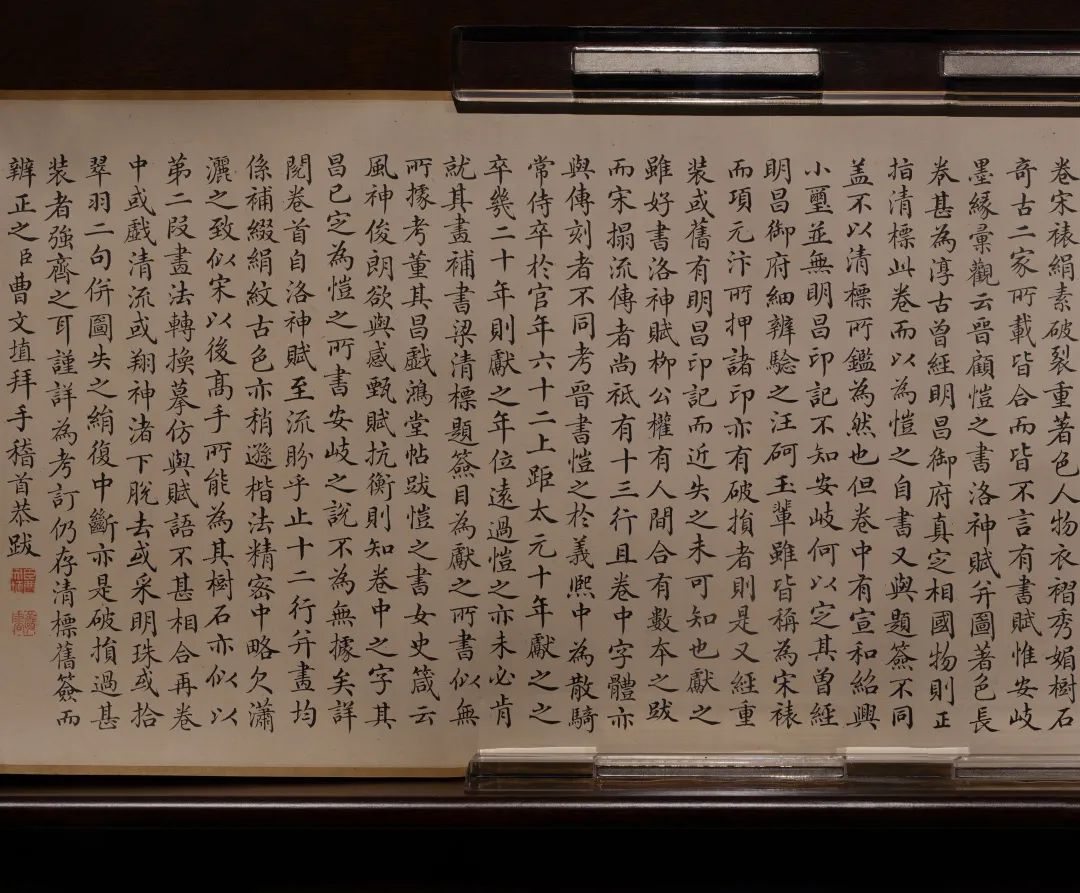 卷宋裱絹素破裂重著色人物衣褶秀媚樹石
奇古二家所載皆合而皆不言有書賦惟安岐
墨緣彙觀云晉顧愷之書洛神賦并圖著色長
卷甚為淳古曾經明昌御府真定相國物則正
指清標此卷而以為愷之自書又與題簽不同
蓋不以清標所鑑為然也但卷中有宣和紹興
小璽並無明昌印記不知安岐何以定其曾經
明昌御府細辨驗之汪砢玉輩雖皆稱為宋裱
而項元汴所押諸印亦有破損者則是又經重
裝或舊有明昌印記而近失之未可知也獻之
雖好書洛神賦柳公權有人間合有數本之跋
而宋搨流傳者尚祗有十三行且卷中字體亦
與傳刻者不同考晉書愷之於義熙中為散騎
常侍卒於官年六十二上距太元十年獻之之
卒幾二十年則獻之年位遠過愷之亦未必肯
就其畫補書梁清標題簽目為獻之所書似無
所據考董其昌戲鴻堂帖跋愷之書女史箴云
風神俊朗欲與感甄賦抗衡則知卷中之字其
昌已定為愷之所書安岐之說不為無據矣詳
閱卷首自洛神賦至流盼乎止十二行并畫均
係補綴絹紋古色亦稍遜楷法精密中略欠瀟
灑之致似宋以後高手所能為其樹石亦似以
第二段畫法轉換摹仿與賦語不甚相合再卷
中或戲清流或翔神渚下脫去或采明珠或拾
翠羽二句併圖失之絹復中斷亦是破損過甚
裝者強齊之耳謹詳為考訂仍存清標舊簽而
辨正之臣曹文埴拜手稽首恭跋